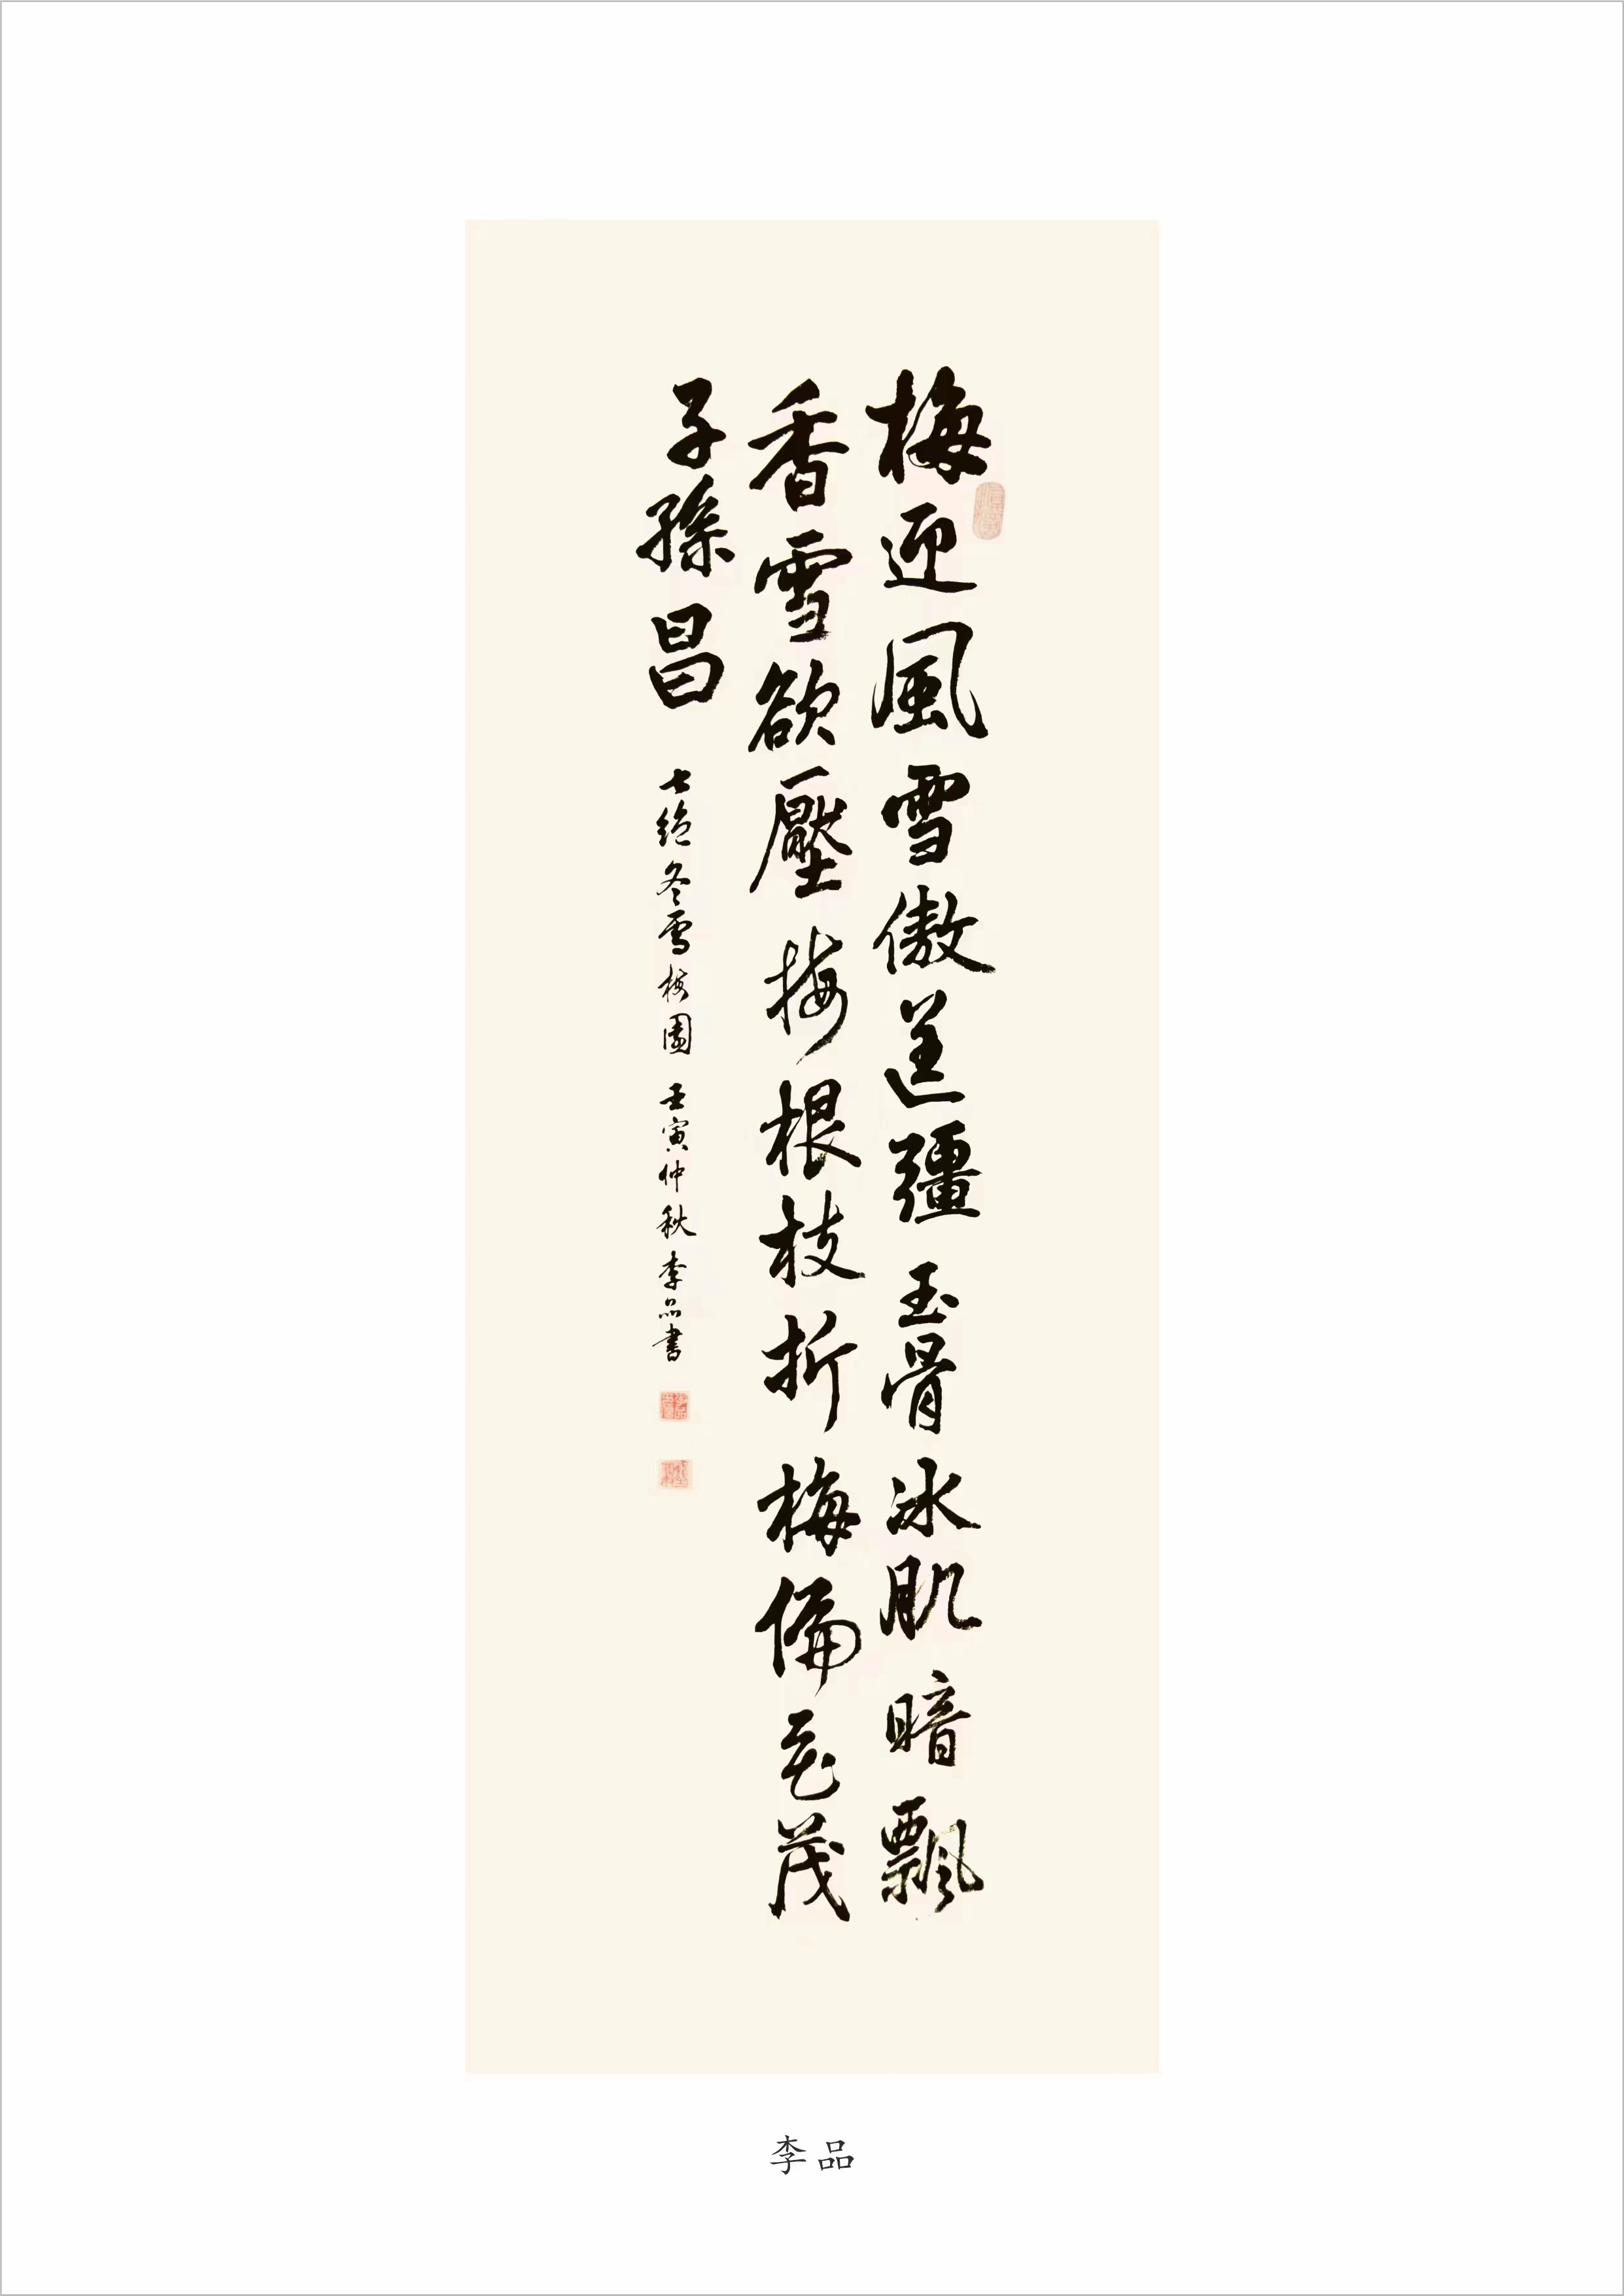 梅迎風雪傲筐疆玉骨冰肌暗飄
香雪欲壓梅根枝折梅偏花茂
子孫昌
七絕冬雪梅園 壬寅仲秋李品書
李品